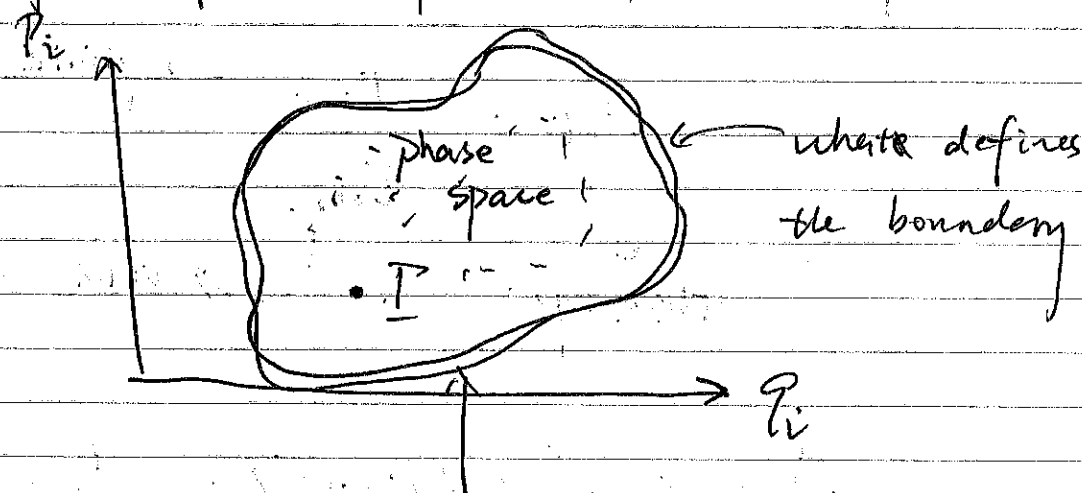 P_i
phase
space
Γ
what defines
the boundary
q_i